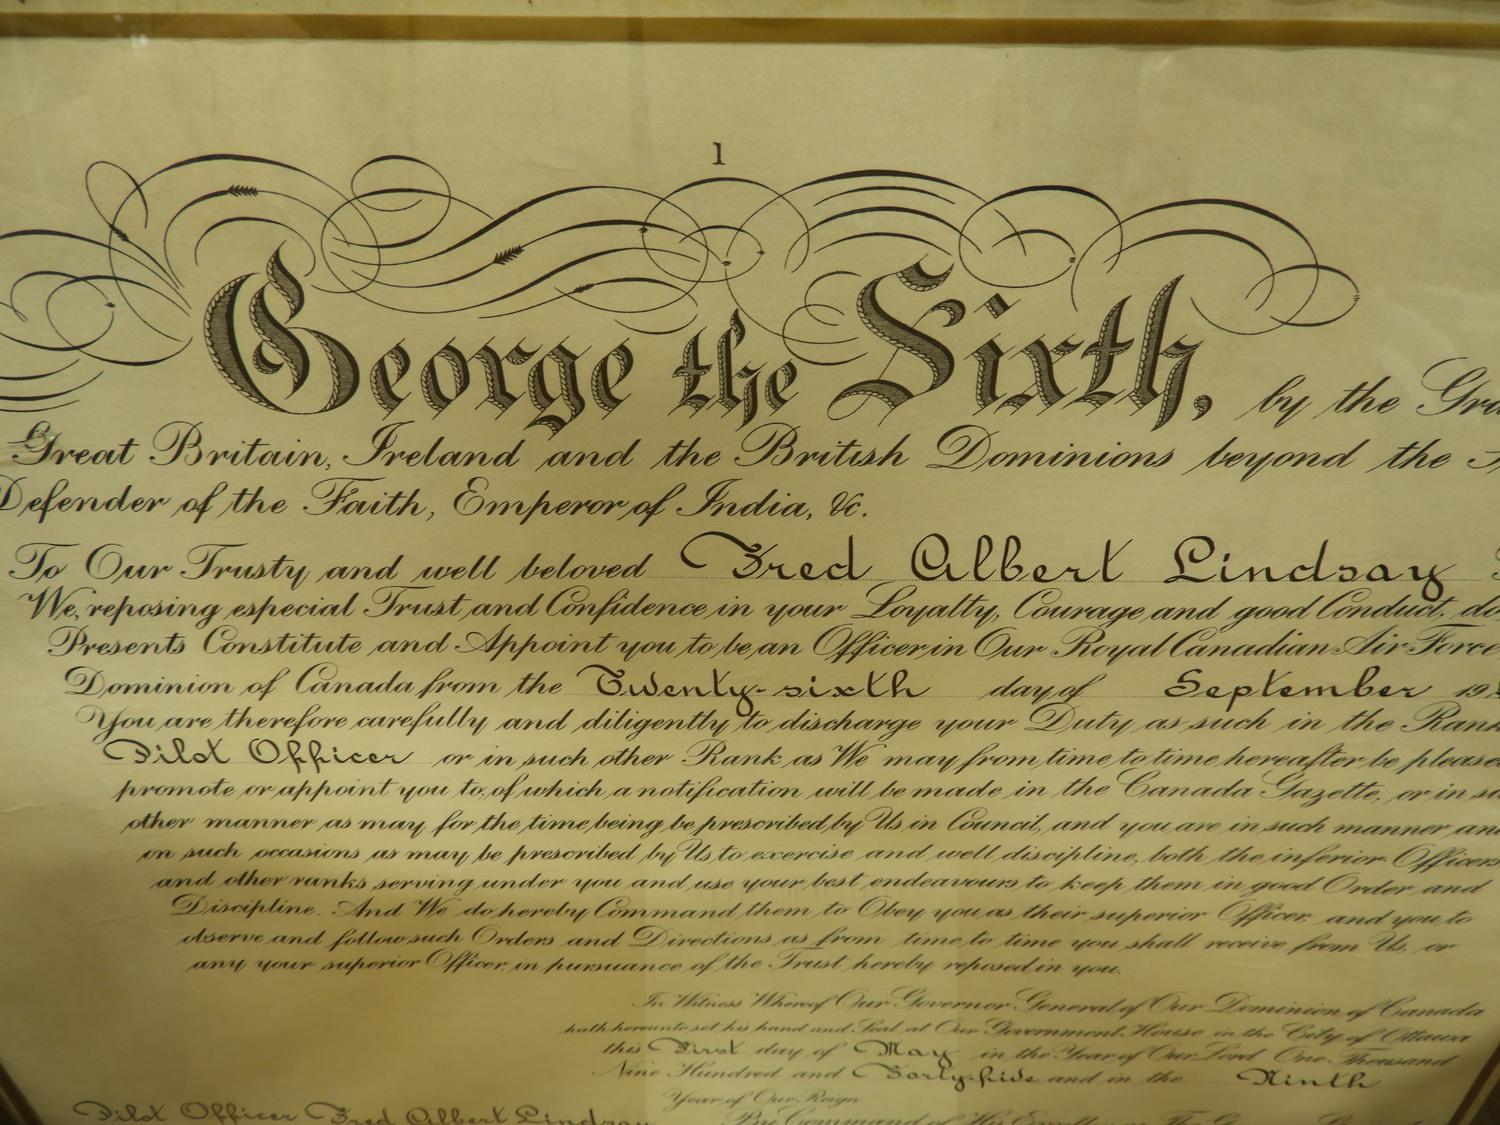 1
George the Sixth, by the
Great Britain, Ireland and the British Dominions beyond the
Defender of the Faith, Emperor of India, &c.
To Our Trusty and well beloved Fred Albert Lindsay
We, reposing especial Trust and Confidence in your Loyalty, Courage and good Conduct, do
Presents Constitute and Appoint you to be an Officer in Our Royal Canadian Air Force
Dominion of Canada from the Twenty-sixth day of September 19
You are therefore carefully and diligently to discharge your Duty as such in the Rank
Pilot Officer or in such other Rank as We may from time to time hereafter be pleased
promote or appoint you to, of which a notification will be made in the Canada Gazette, or in
other manner as may for the time being be prescribed by Us in Council, and you are in such manner and
on such occasions as may be prescribed by Us to exercise and well discipline, both the inferior Officers
and other ranks serving under you and use your best endeavours to keep them in good Order and
Discipline. And We do hereby Command them to Obey you as their superior Officer, and you to
observe and follow such Orders and Directions as from time to time you shall receive from Us, or
any your superior Officer, in pursuance of the Trust hereby reposed in you.
In Witness Whereof Our Governor General of Our Dominion of Canada
hath hereunto set his hand and Seal at Our Government House in the City of Ottawa
this First day of May in the Year of Our Lord One Thousand
Nine Hundred and Forty-five and in the Ninth
Year of Our Reign
Pilot Officer Fred Albert Lindsay By Command of His